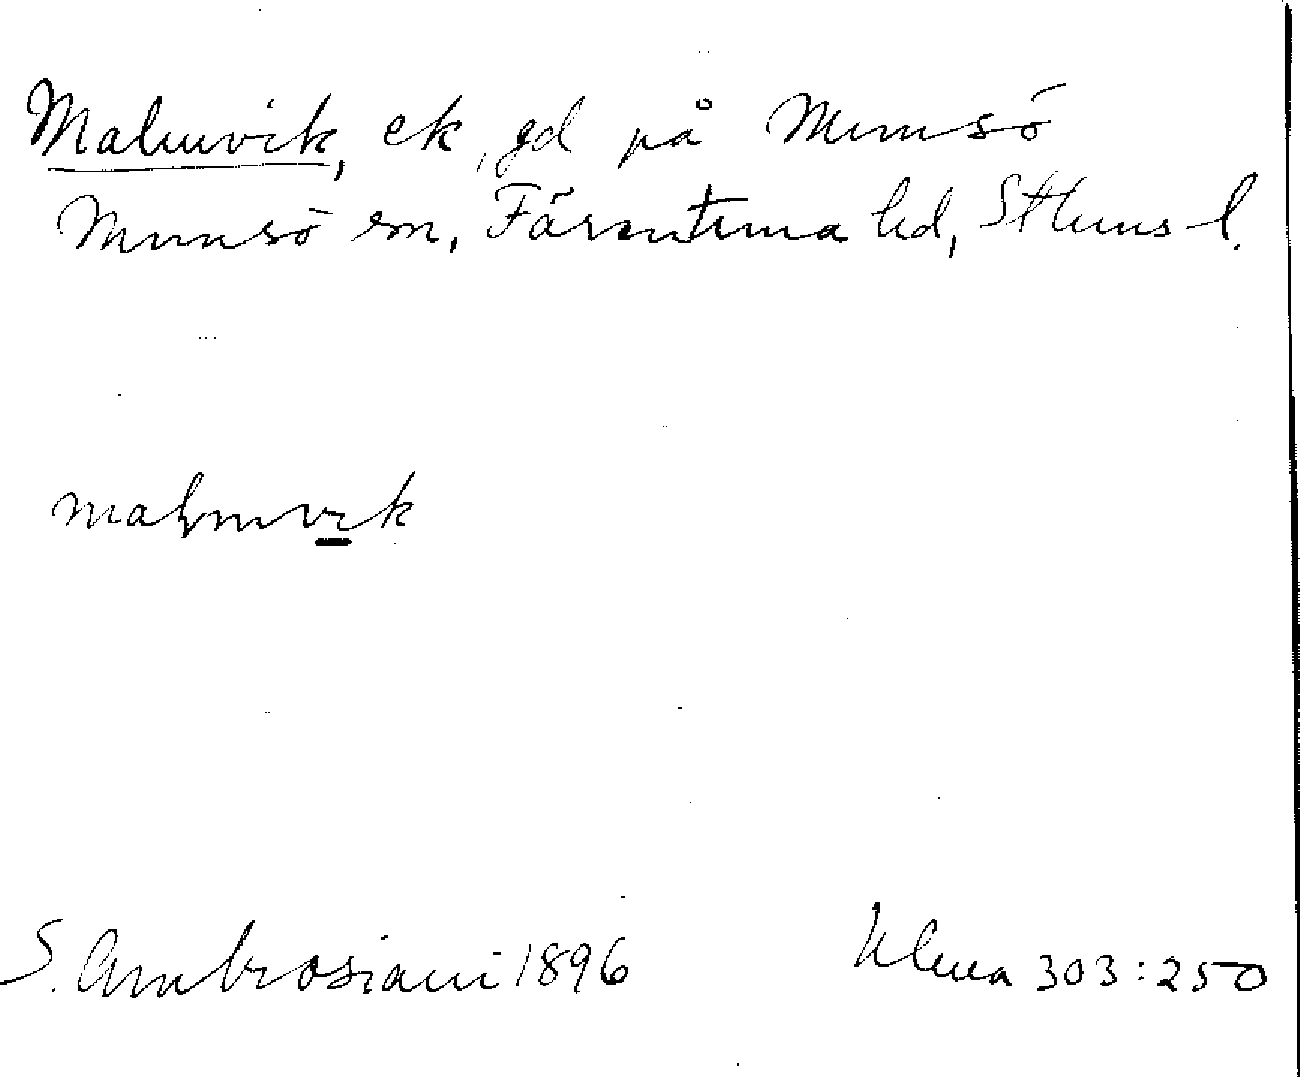 Malmvik, ek, gd på Munsö
Munsö sn, Färentuna hd, Sthms l.
malmvik
S. Ambrosiani 1896
Ulma 303:250